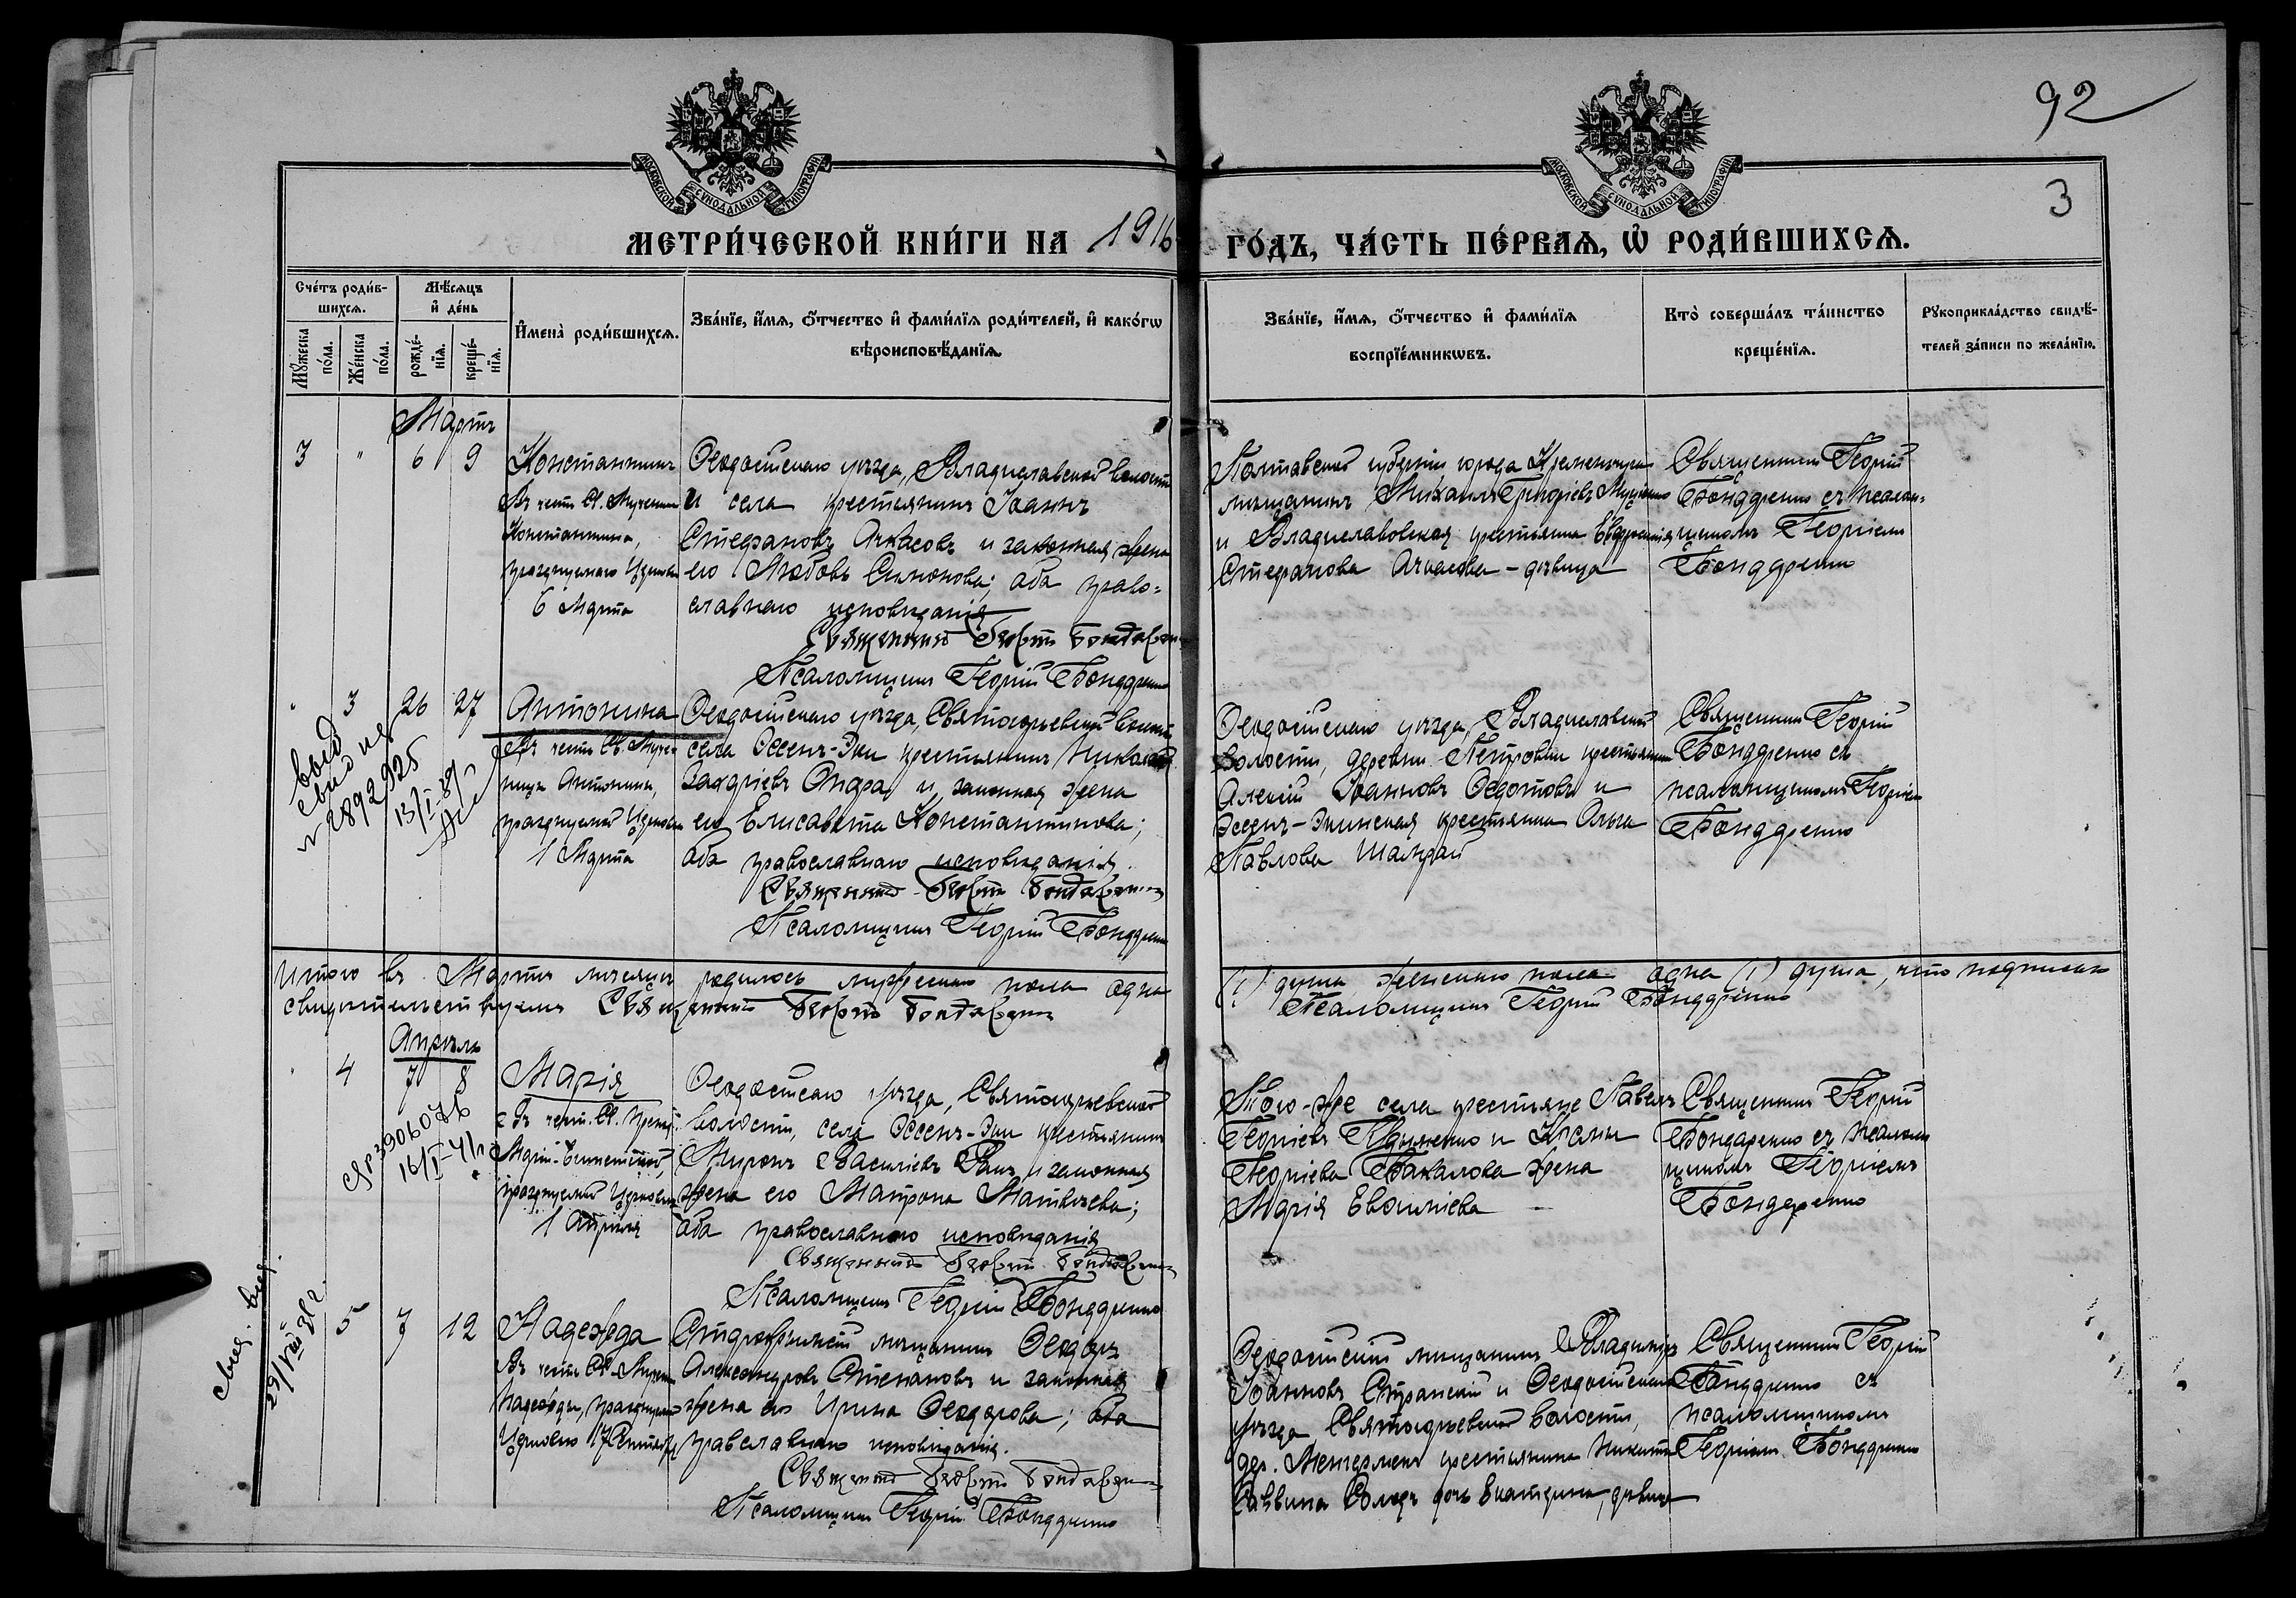 92
3
МОСКОВСКОЙ СѴНОДАЛЬНОЙ ТИПОГРАФІИ
МОСКОВСКОЙ СѴНОДАЛЬНОЙ ТИПОГРАФІИ
МЕТРИ́ЧЕСКОЙ КНИ́ГИ НА 1916
ГО́ДЪ, ЧА́СТЬ ПЕ́РВАѦ, Ѡ҆ РОДИ́ВШИХСѦ.
Сче́тъ роди́в-
шихсѧ.
Мꙋ́жеска по́ла.
Же́нска по́ла.
Мѣ́сѧцъ
и҆ де́нь
рожде́-
нїѧ.
креще́-
нїѧ.
И҆мена̀ роди́вшихсѧ.
Зва́нїе, и҆́мѧ, ѻ҆́тчество и҆ фами́лїѧ роди́телей, и҆ како́гѡ
вѣроисповѣ́данїѧ.
Зва́нїе, и҆́мѧ, ѻ҆́тчество и҆ фами́лїѧ
воспрїе́мникѡвъ.
Кто̀ соверша́лъ та́инство
креще́нїѧ.
Рꙋкоприкла́дство свидѣ́-
телей за́писи по жела́нїю.
Мартъ
3 " 6 9
Константинъ
Въ честь Св. Мученика
Константина,
празднуемаго Церковью
6 Марта
Ѳеодосійскаго уѣзда, Владиславской волости
и села крестьянинъ Іоаннъ
Стефановъ Ачкасовъ и законная жена
его Любовь Симонова; оба право=
славнаго исповѣданія
Священникъ Георгій Бондаренко
Псаломщикъ Георгій Бондаренко
Полтавской губерніи города Кременчуга
мѣщанинъ Михаилъ Григорьевъ
и Владиславовская крестьянка Евдокія
Стефанова Ачкасова - дѣвица
Священникъ Георгій
Бондаренко съ псалом=
щикомъ Георгіемъ
Бондаренко
" 3 26 27
Антонина
Въ честь Св. Муче-
ницы Антонины,
празднуемой Церковью
1 Марта
Ѳеодосійскаго уѣзда, Святогорьевской волости
села Эссенъ-Эки крестьянинъ Николай
Захаріевъ Ондра и законная жена
его Елисавета Константинова;
оба православнаго исповѣданія.
Священникъ Георгій Бондаренко
Псаломщикъ Георгій Бондаренко
Ѳеодосійскаго уѣзда, Владиславской
волости, деревни Петровки крестьянинъ
Алексій Іоанновъ Ѳедотовъ и
Эссенъ-Экинская крестьянка Ольга
Павлова
Священникъ Георгій
Бондаренко съ
псаломщикомъ Георгіемъ
Бондаренко
выд
свид
№ 2892925
13/I-
Итого въ Мартѣ мѣсяцѣ родилось мужескаго пола одна
(1) душа женскаго пола одна (1) душа, что подписью
свидѣтельствуемъ Священникъ Георгій Бондаренко
Псаломщикъ Георгій Бондаренко
Апрѣль
" 4 7 8
Марія
Въ честь Св. Преп.
Маріи Египетской,
празднуемой Церковью
1 Апрѣля
Ѳеодосійскаго уѣзда, Святогорьевской
волости, села Эссенъ-Эки крестьянинъ
Миронъ Василіевъ и законная
жена его Матрона Матвѣева;
оба православнаго исповѣданія
Священникъ Георгій Бондаренко
Псаломщикъ Георгій Бондаренко
Того-же села крестьяне Павелъ
Георгіевъ и
Георгіева Бакалова жена
Марія
Священникъ Георгій
Бондаренко съ псалом
щикомъ Георгіемъ
Бондаренко
3906076
16/I-41
5 7 12
Надежда
Въ честь Св. Мучен.
Надежды, празднуемой
Церковью 17 Сентября
Старокрымскій мѣщанинъ Ѳеодоръ
Александровъ Степановъ и законная
жена его Ирина Ѳеодорова; оба
православнаго исповѣданія.
Священникъ Георгій Бондаренко
Псаломщикъ Георгій Бондаренко
Ѳеодосійскій мѣщанинъ Владиміръ
Іоанновъ и Ѳеодосійскаго
уѣзда, Святогорьевской волости,
дер. крестьянина Никиты
дочь Екатерина, дѣвица
Священникъ Георгій
Бондаренко съ
псаломщикомъ
Георгіемъ Бондаренко
свид. выд.
29/VIII 38 г.